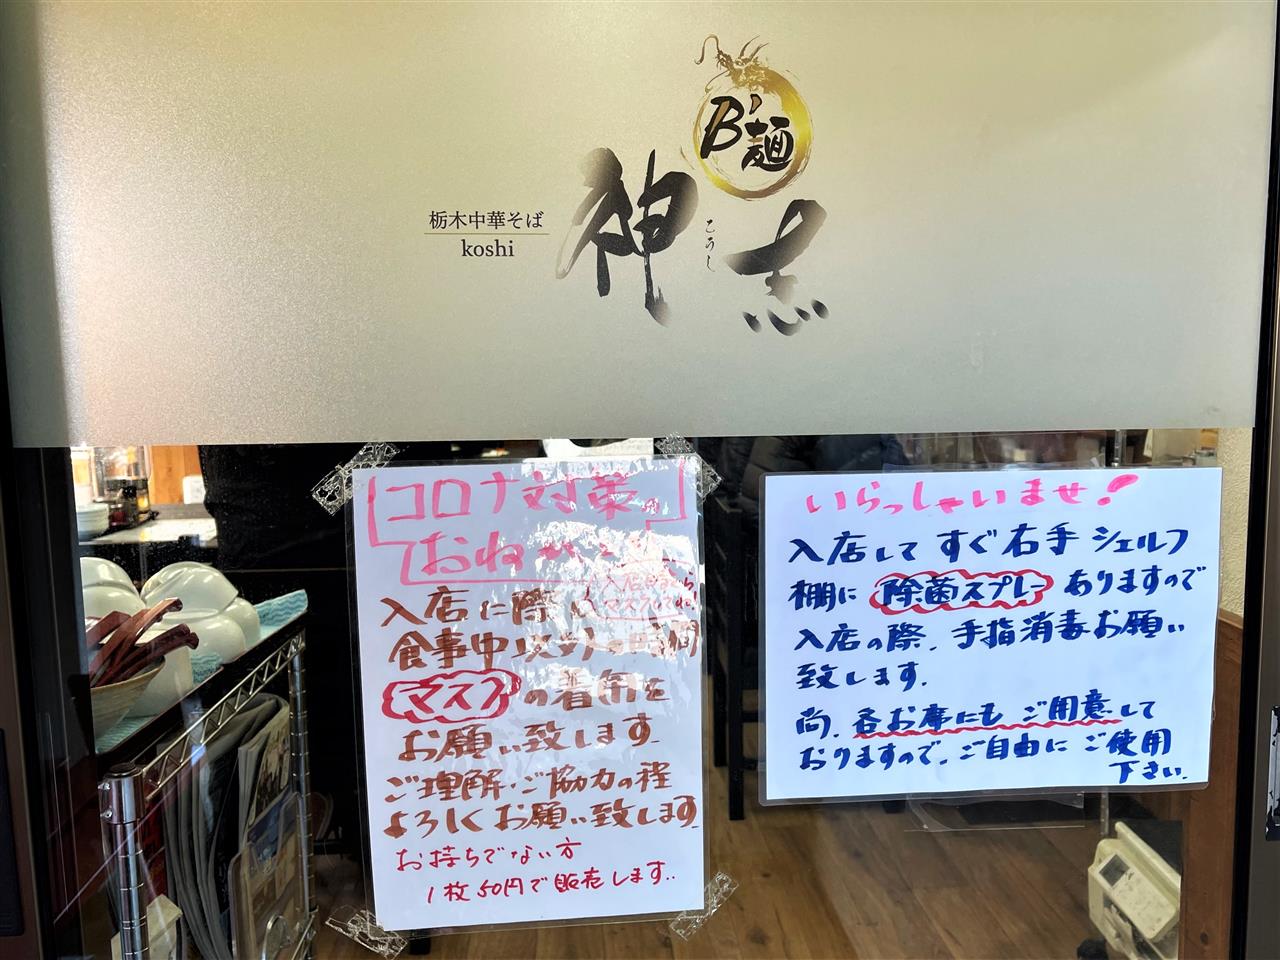 B'麺
神志
こうし
栃木中華そば
koshi
コロナ対策の
おねがい
入店に際し
食事中以外の時間
マスクの着用を
お願い致します
ご理解・ご協力の程
よろしくお願い致します
お持ちでない方
1枚50円で販売します..
いらっしゃいませ!
入店してすぐ右手シェルフ
棚に除菌スプレーありますので
入店の際、手指消毒お願い
致します.
尚、各お席にもご用意して
おりますので、ご自由にご使用
下さい.